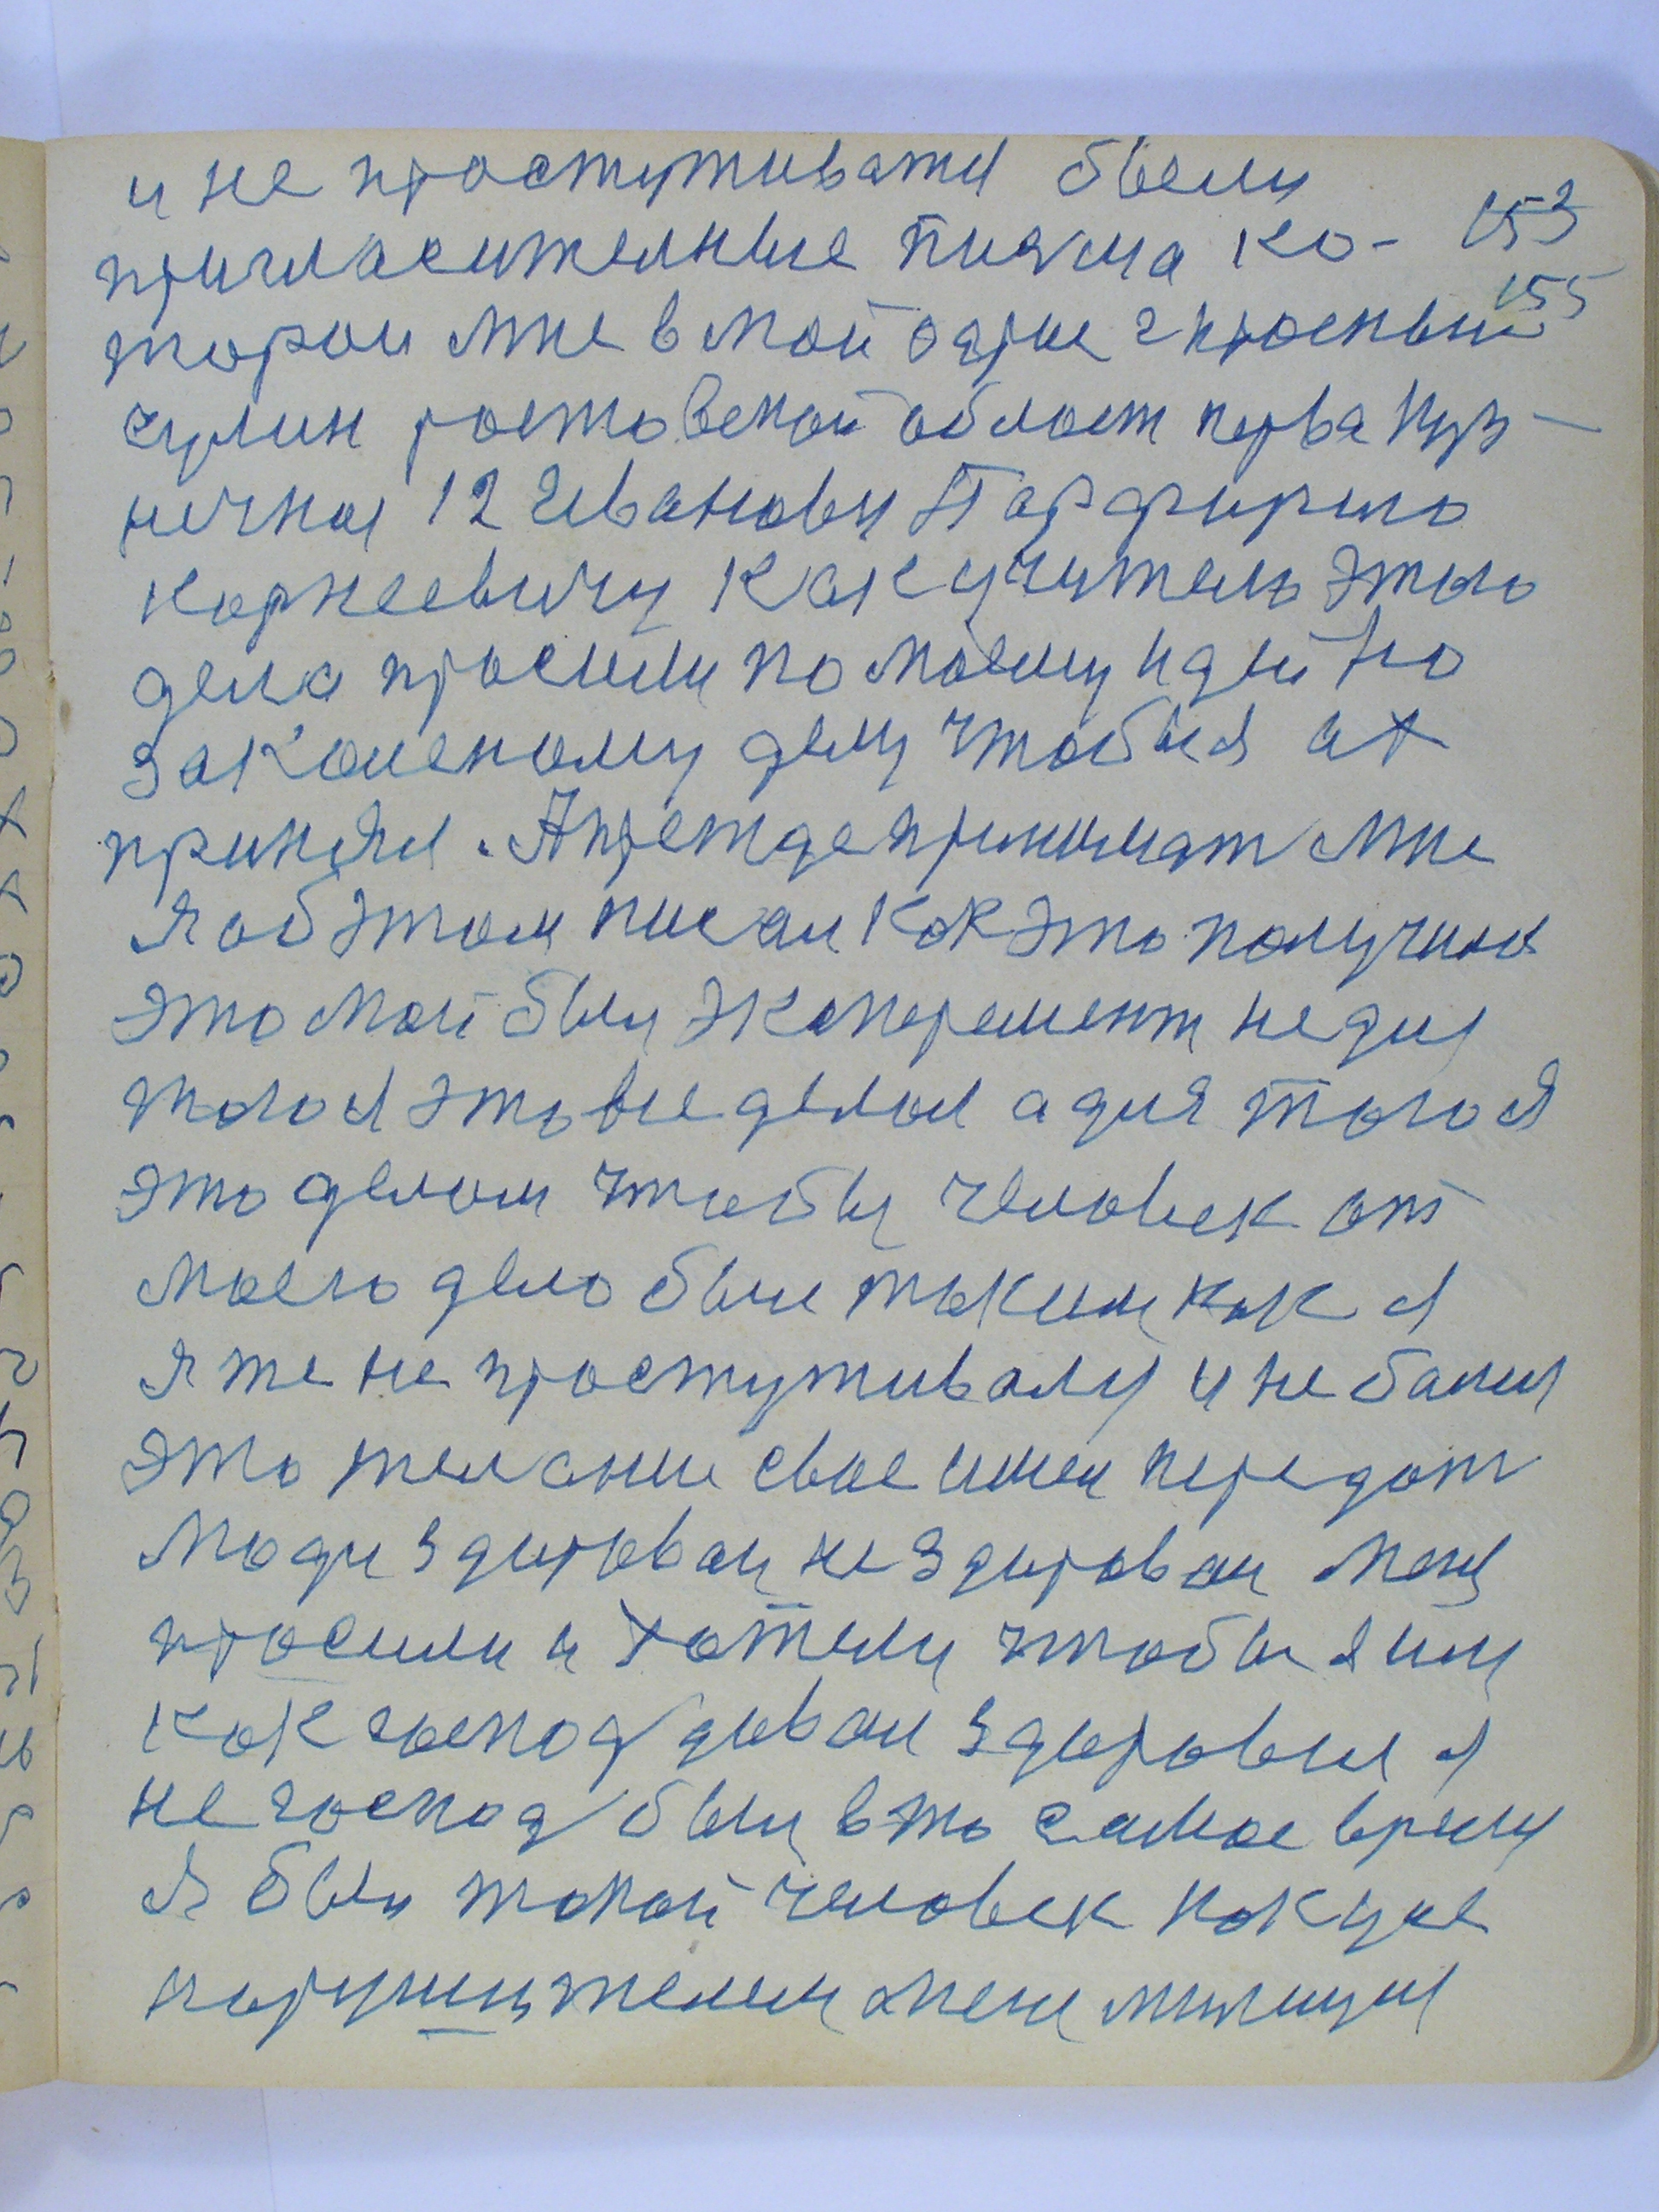 и не простуживатя были
пригласителные писма ко- 153
155
торои мне в мой одрис г красный
сулин ростовской област перва куз-
нечная 12 Иванову Парфирию
Корнеевичу как учителю этого
дела просили по моему идейно
заколеному делу чтобы я их
принял. А прежде принимат мне
я об этом писал как это получился
это мой был эксперемент не для
того я это все делал а для того я
это делал чтобы человек от
моего дело был таким как я
я же не простуживаля и не балел
это желание свае имел передат
люди здировай не здировай меня
просили и хотели чтобы я им
как господ давал здировия я
не господ был в то самое время
я был такой человек как уже
нарушителем меня милиция